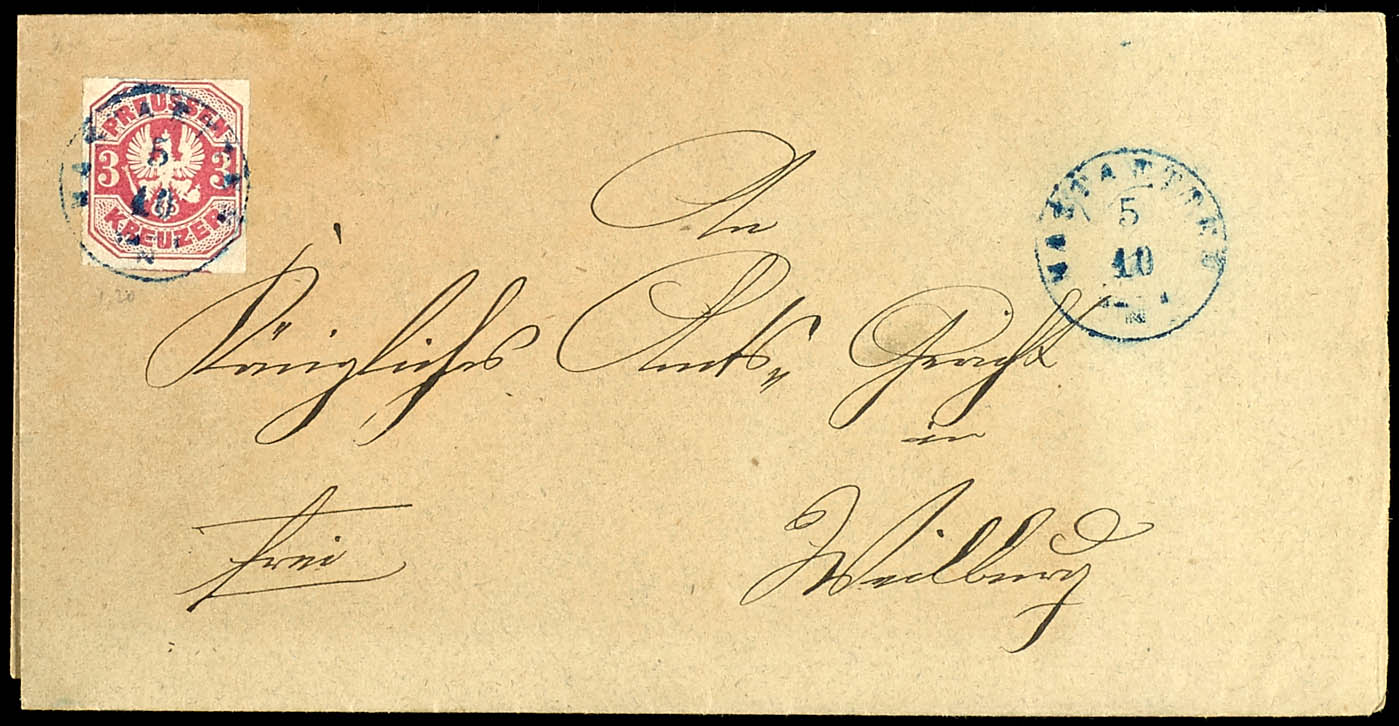 PREUSSEN
3 3
KREUZER
5
10
NASTAETTEN
5
10
1.20
An
Königliches Amts„ Gericht
in
Weilburg
frei